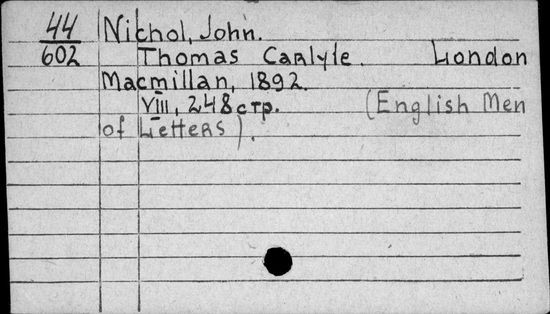 44 Nichol, John.
602 Thomas Carlyle. London
Macmillan, 1892.
VIII, 248 стр. (English Men
of Letters).